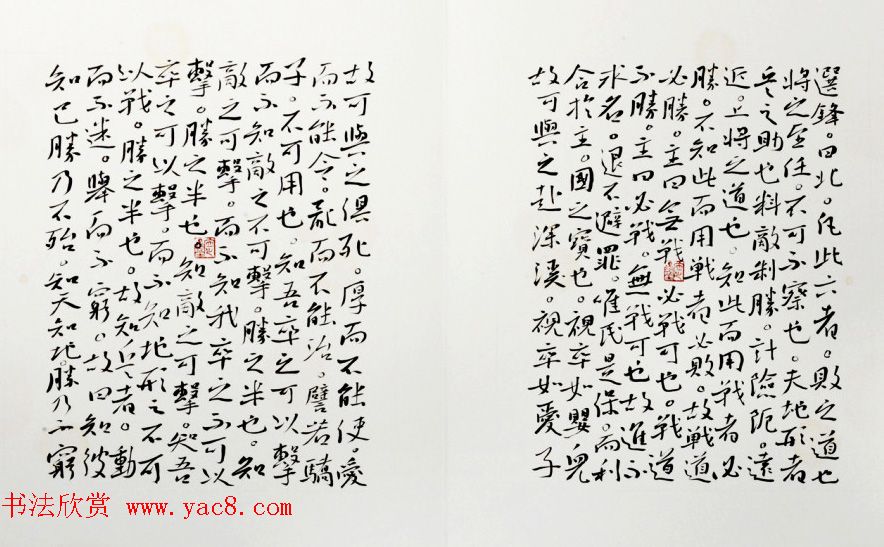 選鋒。曰北。凡此六者。敗之道也
將之至任。不可不察也。夫地形者
兵之助也料敵制勝。計險阨。遠
近。上將之道也。知此而用戰者必
勝。不知此而用戰者必敗。故戰道
必勝。主曰無戰必戰可也。戰道
不勝。主曰必戰。無戰可也故進不
求名。退不避罪。唯民是保。而利
合於主。國之寶也。視卒如嬰兒
故可與之赴深溪。視卒如愛子
故可與之俱死。厚而不能使。愛
而不能令。亂而不能治。譬若驕
子。不可用也。知吾卒之可以擊
而不知敵之不可擊。勝之半也。知
敵之可擊。而不知我卒之不可以
擊。勝之半也知敵之可擊。知吾
卒之可以擊。而不知地形之不可
以戰。勝之半也。故知兵者。動
而不迷。舉而不窮。故曰知彼
知己勝乃不殆。知天知地。勝乃不窮
书法欣赏 www.yac8.com